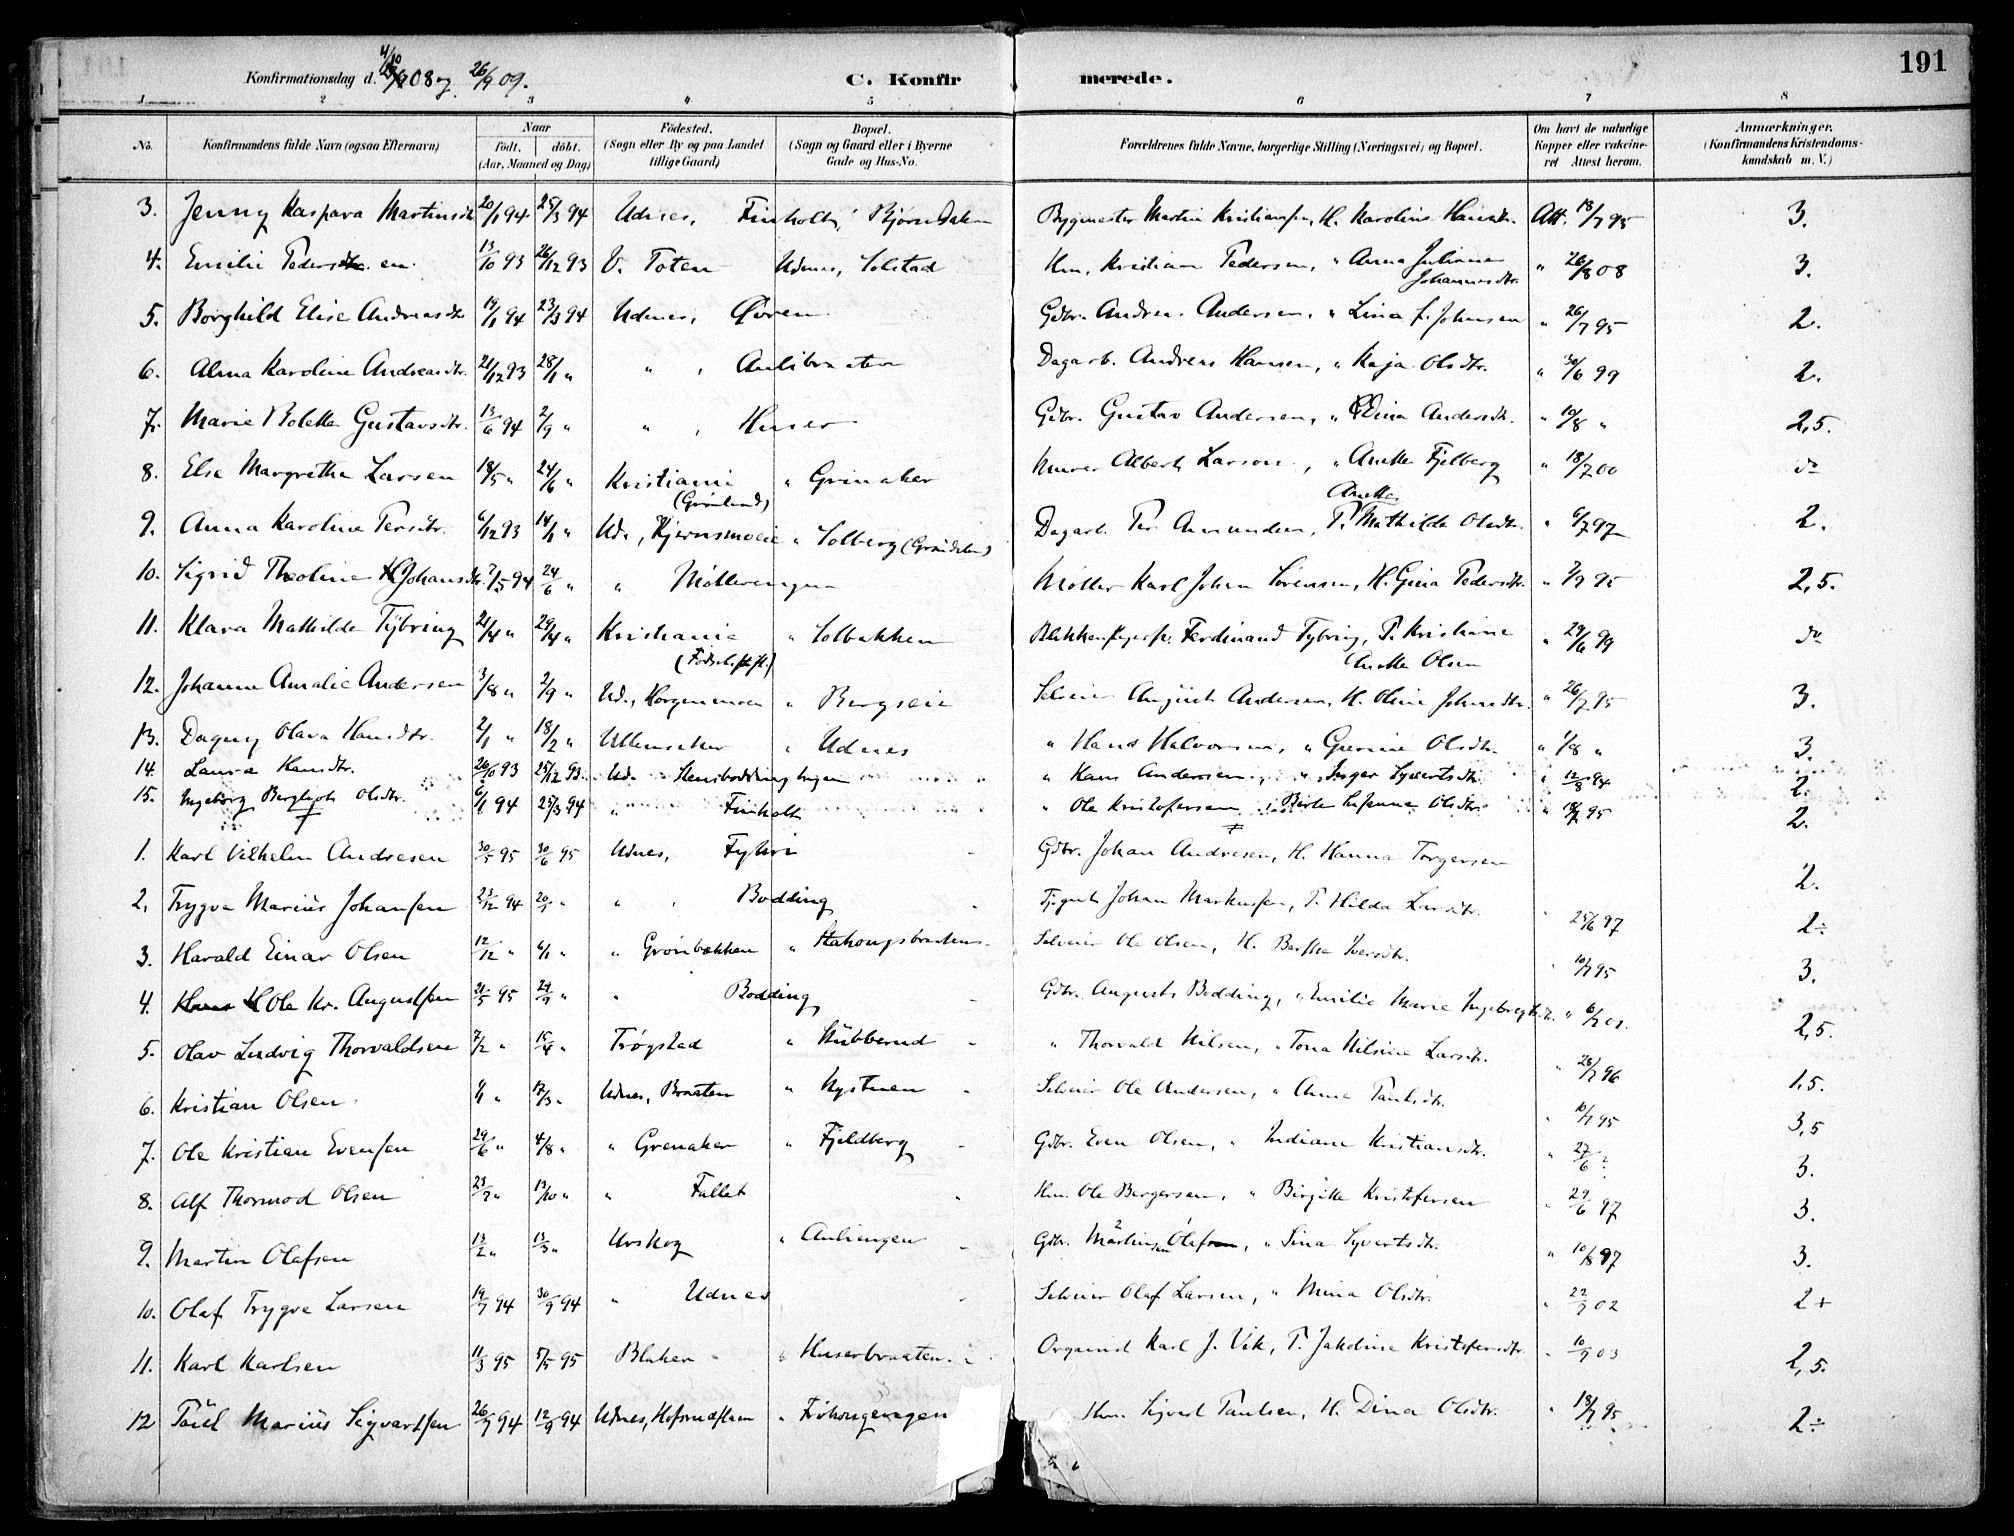 191
Konfirmationsdag d. 4/10 08 og 26/9 09.
C. Konfirmerede.
1 2 3 4 5 6 7 8
No. Konfirmandens fulde Navn (ogsaa Efternavn) Naar født. døbt. (Aar, Maaned og Dag) Fødested. (Sogn eller By og paa Landet tillige Gaard) Bopæl. (Sogn og Gaard eller i Byerne Gade og Hus-No. Forældrenes fulde Navne, borgerlige Stilling (Næringsvei) og Bopæl. Om havt de naturlige Kopper eller vakcineret Attest herom. Anmærkninger. (Konfirmandens Kristendomskundskab m. V.)
3. Jenny Kaspara Martinsdtr 20/1 94 25/3 94 Udnes, Finholt, Bjørndalen Bygmester Martin Kristiansen, H. Karoline Hansdtr. Att. 18/7 95 3.
4. Emilie Pedersen 13/10 93 26/12 93 V. Toten Udnes, Solstad Hm. Kristian Pedersen, " Anna Juliane Johannesdtr. " 26/8 08 3.
5. Borghild Elise Andreasdtr 19/1 94 23/3 94 Udnes, Øvren Gdbr. Andreas Andersen, " Lina f. Johnsen " 26/7 95 2.
6. Alma Karoline Andreasdtr. 21/12 93 28/1 " " , Aulibraaten Dagarb. Andreas Hansen, " Kaja Olsdtr. " 30/6 99 2.
7. Marie Bolette Gustavsdtr. 13/6 94 2/9 " " , Huser Gdbr. Gustav Andersen, " Dina Andersdtr. " 10/8 " 2,5.
8. Else Margrethe Larsen 18/5 " 24/6 " Kristiania (Grønland) " Grinaker Murer Albert Larsen, " Anette Fjelberg " 18/7 00 do
9. Anna Karoline Persdtr. 6/12 93 14/1 " Ud., Kjernsmoeie " Solberg (Grøndalen) Dagarb. Per Amundsen, P. Anette Mathilde Olsdtr. " 6/7 97 2.
10. Sigrid Theoline Johansdtr. 7/5 94 24/6 " " Møllerengen Møller Karl Johan Sørensen, H. Gina Pedersdtr. " 7/7 95 2,5.
11. Klara Mathilde Tybring 21/4 " 29/4 " Kristiania (Fødselsstift.) " Solbakken Ferdinand Tybring, P. Kristiane Anette Olsen " 29/6 99 do
12. Johanne Amalie Andersen 3/8 " 2/9 " Ud., Horgenmoen " Bergseie Selveier August Andersen, H. Oline Johnsdtr. " 26/7 95 3.
13. Dagny Olava Hansdtr. 2/1 " 18/2 " Ullensaker " Udnes " Hans Halvorsen, " Grerine Olsdtr. " 1/8 " 3.
14. Laura Hansdtr. 26/10 93 25/12 93. Ud. Stensboddinghagen " Hans Andersen, " Inger Syvertsdtr. " 12/8 94 2.
15. Ingeborg Bergljot Olsdtr. 6/1 94 25/3 94 " Finholt " Ole Kristofersen, " Berte Susanna Olsdtr. " 18/7 95 2.
1. Karl Vilhelm Andresen 30/5 95 30/6 95 Udnes, Fyhri Gdbr. Johan Andresen, H. Hanna Torgersen 2.
2. Trygve Marius Johansen 23/12 94 20/1 " " , Bodding Johan Markussen, P. Hilda Larsdtr. 25/6 97 2÷
3. Harald Einar Olsen 12/12 " 6/1 " " Grønbækken " Selveier Ole Olsen, H. Berthe Iversdtr. " 10/7 95 3.
4. Ole Kr. Augustsen 21/5 95 29/7 " " Bodding Gdbr. August Bodding, " Emilie Marie Ingebregtsd. " 6/7 01. 2,5.
5. Olav Ludvig Thorvaldsen 7/2 " 15/4 " Trøgstad " Stubberud " Thorvald Nilsen, " Tona Nilsine Larsdtr. " 28/7 96 1,5.
6. Kristian Olsen " 17/3 " Udnes, Braaten " Nystuen Selveier Ole Andersen, " Anne Paulsdtr. " 10/7 95 3,5
7. Ole Kristian Evensen 29/6 " 4/8 " " Grenaker " Fjeldberg Gdbr. Even Olsen, " Indiane Kristiansdtr. " 27/6 ? 3.
8. Alf Thormod Olsen 23/7 " 13/10 " " Fallet Hm. Ole Bergersen, " Birgitte Kristofersen " 29/6 97 3.
9. Martin Olafsen 13/2 " 13/3 " Urskog " Auliengen Gdbr. Martinsen Olaf, " Sina Syvertsdtr. " 10/8 97 3.
10. Olaf Trygve Larsen 19/7 94 30/9 94 " Udnes Selveier Olaf Larsen, " Mina Olsdtr. " 22/7 02 2+
11. Karl Karlsen 11/3 95 5/5 95 Blaker " Huserbraaten Organist Karl J. Vik, P. Jakobine Kristofersdtr. " 10/9 03 2,5.
12 Paul Marius Sigvartsen 26/7 94 12/9 94 Udnes, " Frøhaugengen Hm. Sigvart Paulsen, H. Dina Olsdtr. " 18/7 95 2÷